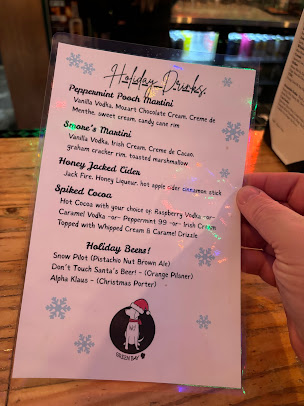 Holiday Drinks
Peppermint Pooch Martini
Vanilla Vodka, Mozart Chocolate Cream, Creme de
Menthe, sweet cream, candy cane rim
Smore's Martini
Vanilla Vodka, Irish Cream, Creme de Cacao,
graham cracker rim, toasted marshmallow
Honey Jacked Cider
Jack Fire, Honey Liqueur, hot apple cider cinnamon stick
Spiked Cocoa
Hot Cocoa with your choice of: Raspberry Vodka -or-
Caramel Vodka -or- Peppermint 99 -or- Irish Cream
Topped with Whipped Cream & Caramel Drizzle
Holiday Beers!
Snow Pilot (Pistachio Nut Brown Ale)
Don't Touch Santa's Beer! - (Orange Pilsner)
Alpha Klaus - (Christmas Porter)
GREEN BAY